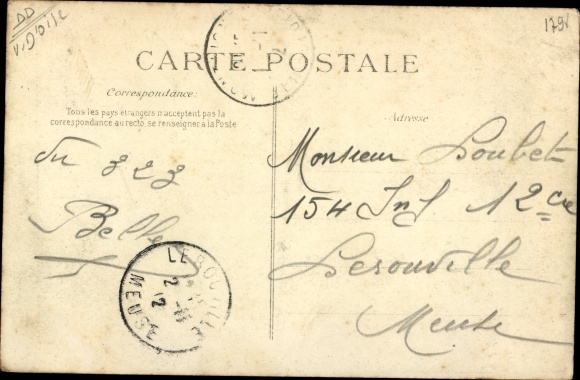 DD
V. D'OISE
179
CARTE POSTALE
Correspondance:
Tous les pays étrangers n'acceptent pas la
correspondance au recto, se renseigner à la Poste
Adresse
du 323
Belle
Monsieur Loubet
154 Inf 12 cie
Lerouville
Meuse
LEROUVILLE
2 -11
12
MEUSE